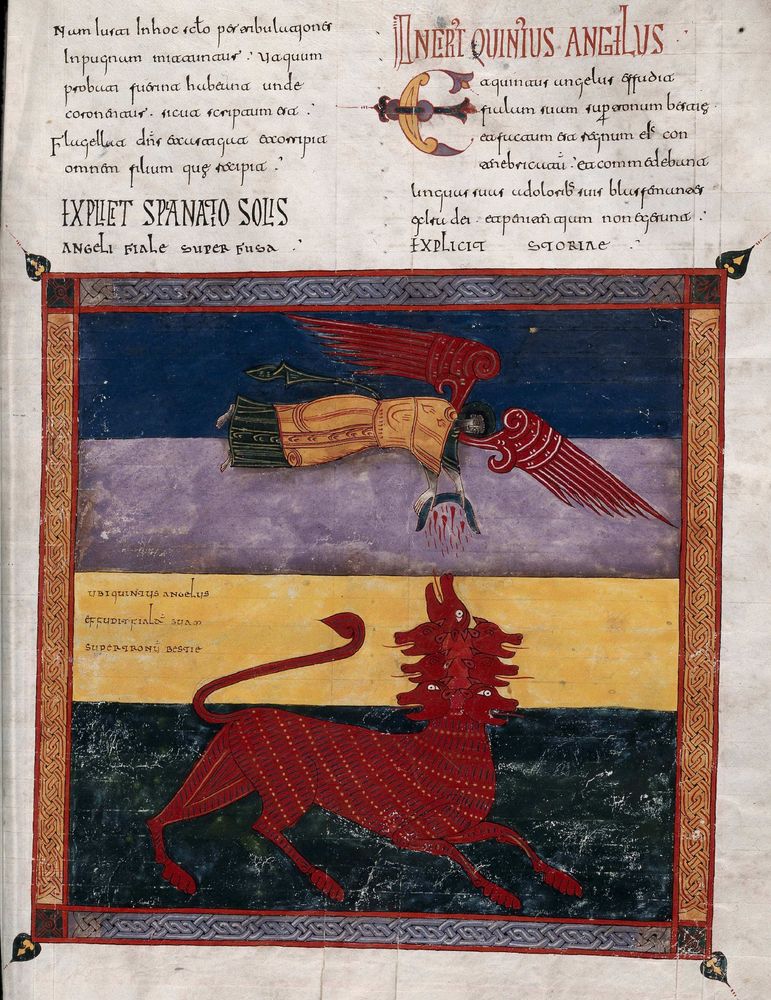 Nam Iusti Inhoc sclo per tribulationes
Inpugnam mittuntur. Ut quum
probati fuerint habeant unde
coronentur. sicut scriptum est.
Flagellat dns
omnem filium que recipit.
EXPLICIT SOLIS
ANGELI FIALE SUPER FUSA
INCPT QUINTUS ANGELUS
Et quintus angelus effudit
fialam suam super tronum bestie.
et factum est regnum eius con
tenebricatum. et commedebant
linguas suas a doloribs suis blasfemantes
dei. et penitentiam non egerunt.
EXPLICIT STORIAE
UBI QUINTUS ANGELUS
EFFUDIT FIALA SUAM
SUPER TRONU BESTIE